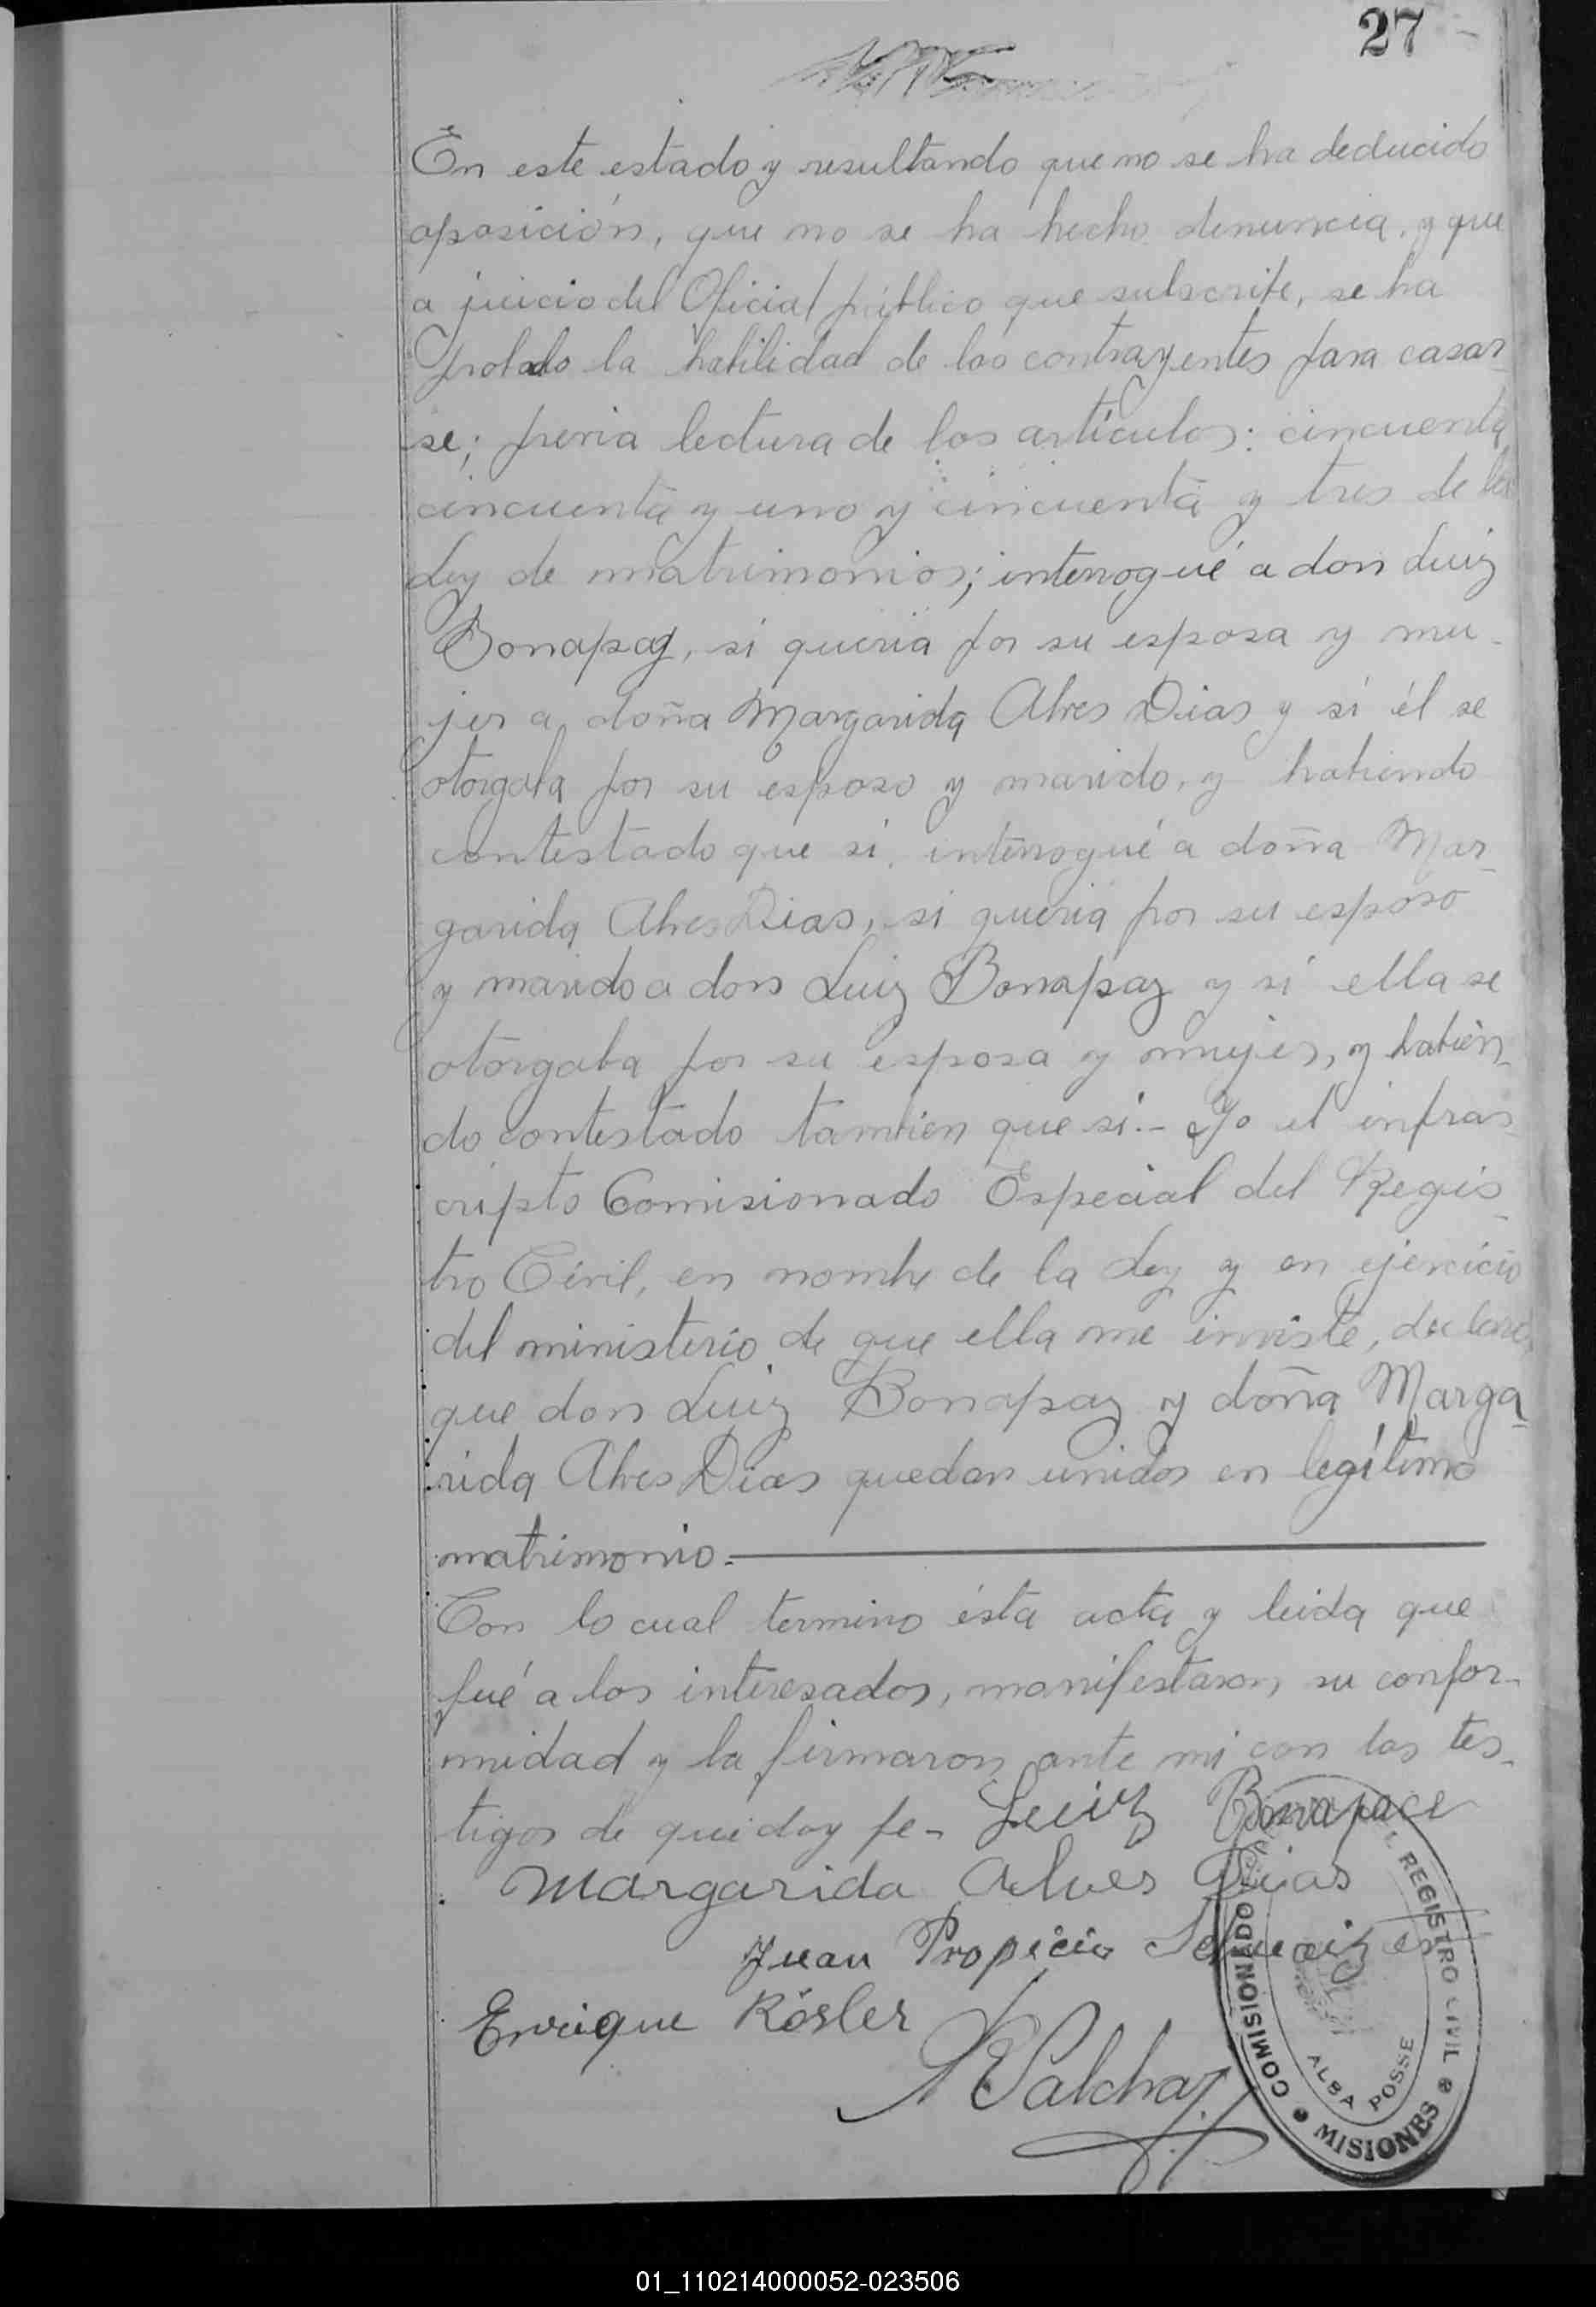 27
En este estado y resultando que no se ha deducido
oposición, que no se ha hecho denuncia, y que
a juicio del Oficial público que subscribe, se ha
probado la habilidad de los contrayentes para casar-
se; previa lectura de los artículos: cincuenta
cincuenta y uno y cincuenta y tres de la
Ley de matrimonios; interrogué a don Luiz
Bonapaz, si queria por su esposa y mu-
jer a doña Margarida Alves Dias y si él se
otorgaba por su esposo y marido, y habiendo
contestado que si, interrogué a doña Mar-
garida Alves Dias, si queria por su esposo
y marido a don Luiz Bonapaz y si ella se
otorgaba por su esposa y mujer, y habien-
do contestado tambien que si.- Yo el infras-
cripto Comisionado Especial del Regis-
tro Civil, en nombre de la Ley y en ejercicio
del ministerio de que ella me inviste, declaro
que don Luiz Bonapaz y doña Marga-
rida Alves Dias quedan unidos en legítimo
matrimonio.-
Con lo cual termino ésta acta y leida que
fué a los interesados, manifestaron su confor-
midad y la firmaron ante mi con los tes-
tigos de que doy fe- Luiz Bonapace
Margarida Alves Dias
Juan Propicio
Enrique Rösler
COMISIONADO REGISTRO CIVIL
ALBA POSSE
MISIONES
01_110214000052-023506